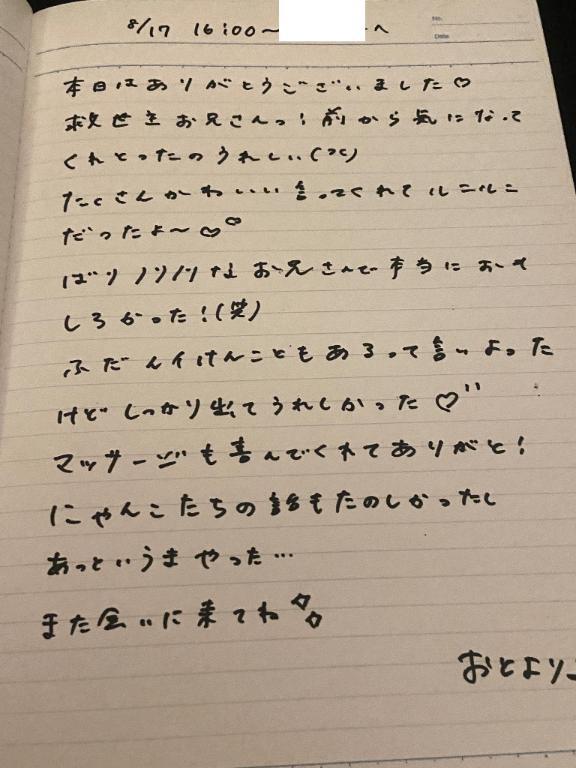 8/17 16:00〜 へ
No.
Date
本日はありがとうございました♡
救世主お兄さんっ！前から気になって
くれとったのうれしい(つC)
たくさんかわいい言ってくれてルンルン
だったよ〜♡♡
ばりノリノリなお兄さんで本当におも
しろかった！(笑)
ふだんイけんこともあるって言いよった
けどしっかり出てうれしかった♡"
マッサージも喜んでくれてありがと！
にゃんこたちの話もたのしかったし
あっというまやった…
また会いに来てね
おとより